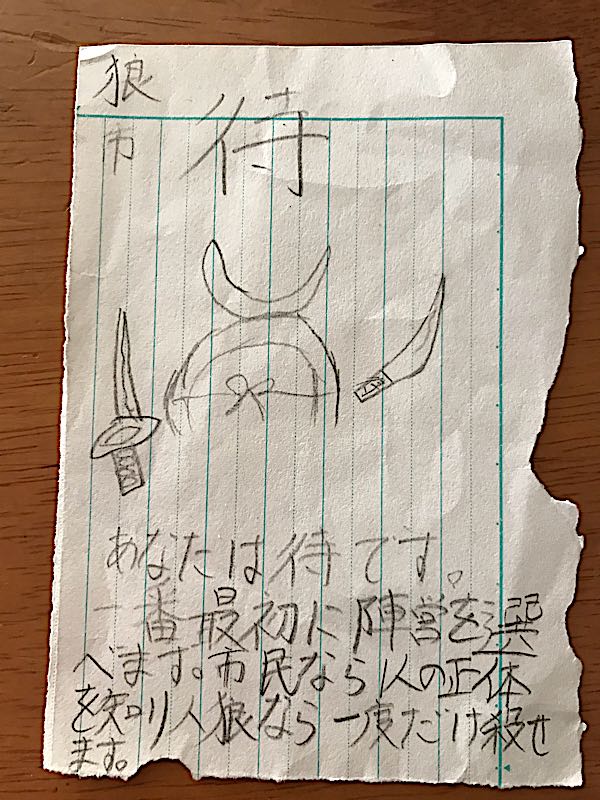 狼
市
待
あなたは待です。
一番最初に陣営を選
べます。市民なら1人の正体
を知り人狼なら一度だけ殺せ
ます。